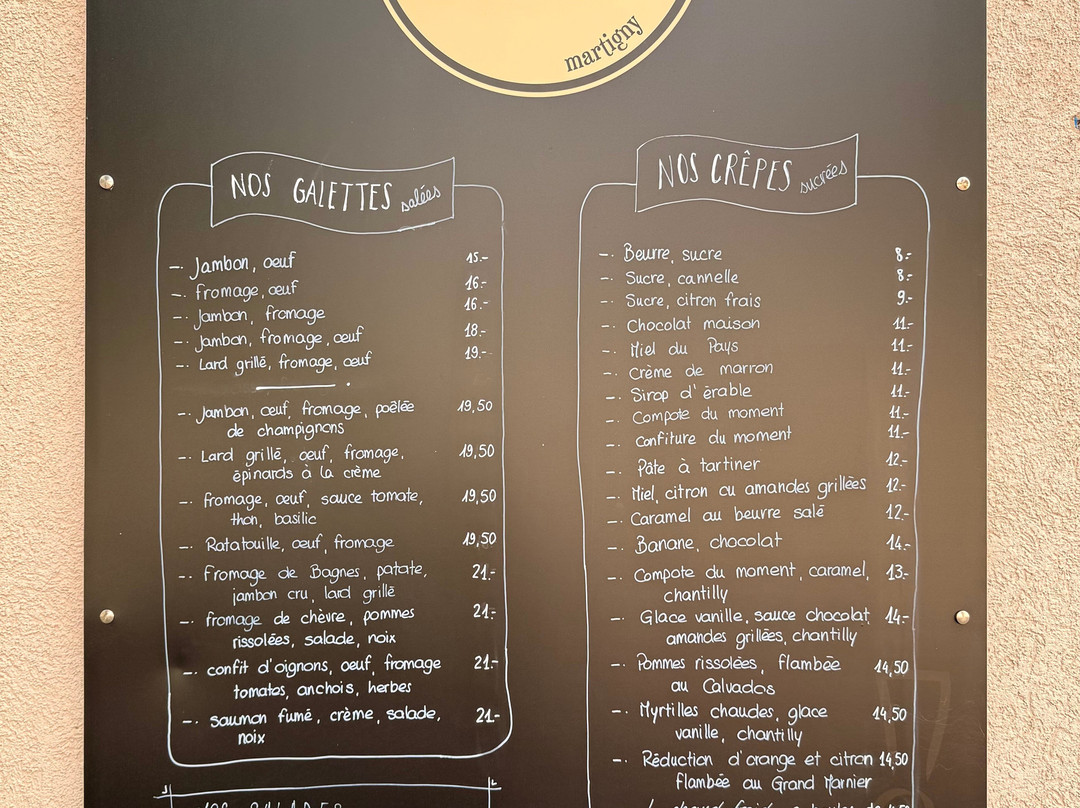 martigny
NOS GALETTES salées
-. Jambon, oeuf 15.-
-. fromage, œuf 16.-
-. Jambon, fromage 16.-
-. Jambon, fromage, œuf 18.-
-. Lard grillé, fromage, œuf 19.-
-. Jambon, œuf, fromage, poêlée 19,50
de champignons
-. Lard grillé, œuf, fromage, 19,50
épinards à la crème
-. fromage, œuf, sauce tomate, 19,50
thon, basilic
-. Ratatouille, œuf, fromage 19,50
-. fromage de Bagnes, patate, 21.-
jambon cru, lard grillé
-. fromage de chèvre, pommes 21.-
rissolées, salade, noix
-. confit d'oignons, oeuf, fromage 21.-
tomates, anchois, herbes
-. saumon fumé, crème, salade, 21.-
noix
NOS CRÊPES sucrées
-. Beurre, sucre 8.-
-. Sucre, cannelle 8.-
-. Sucre, citron frais 9.-
-. Chocolat maison 11.-
-. Miel du Pays 11.-
-. Crème de marron 11.-
-. Sirop d'érable 11.-
-. Compote du moment 11.-
-. Confiture du moment 11.-
-. Pâte à tartiner 12.-
-. Miel, citron ou amandes grillées 12.-
-. Caramel au beurre salé 12.-
-. Banane, chocolat 14.-
-. Compote du moment, caramel, 13.-
chantilly
-. Glace vanille, sauce chocolat, 14.-
amandes grillées, chantilly
-. Pommes rissolées, flambée 14,50
au Calvados
-. Myrtilles chaudes, glace 14,50
vanille, chantilly
-. Réduction d'orange et citron 14,50
flambée au Grand Marnier